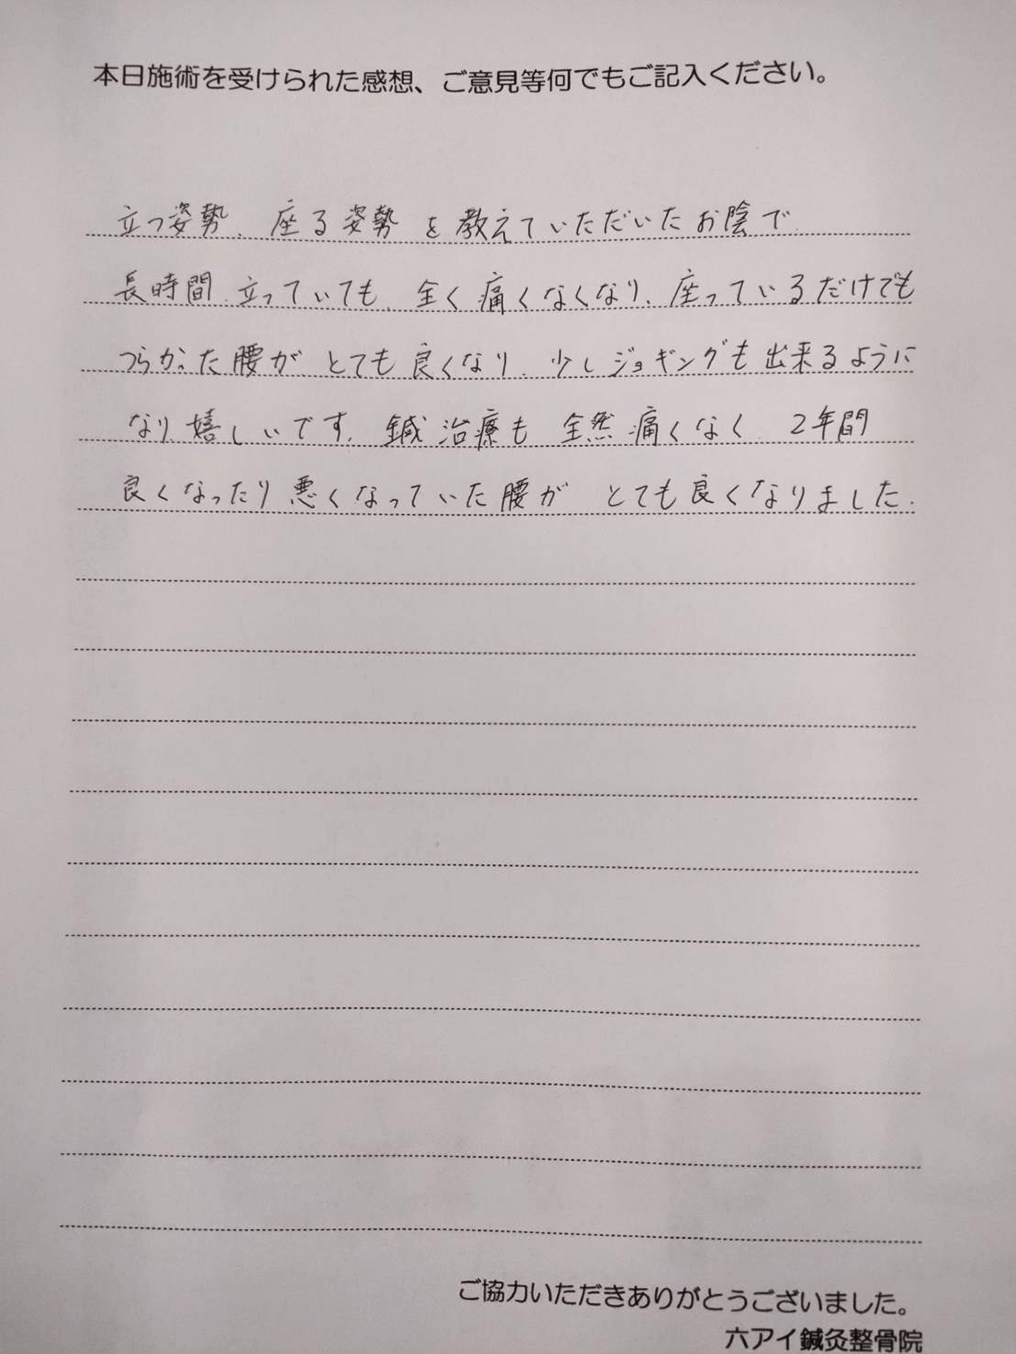 本日施術を受けられた感想、ご意見等何でもご記入ください。
立つ姿勢、座る姿勢を教えていただいたお陰で
長時間立っていても、全く痛くなくなり、座っているだけでも
つらかった腰がとても良くなり、少しジョギングも出来るように
なり、嬉しいです。鍼治療も全然痛くなく、2年間
良くなったり悪くなっていた腰がとても良くなりました。
ご協力いただきありがとうございました。
六アイ鍼灸整骨院